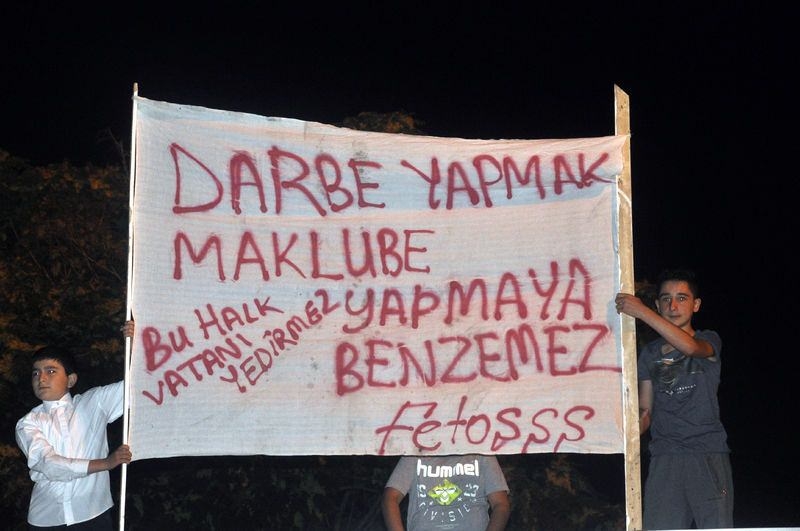 DARBE YAPMAK
MAKLUBE
YAPMAYA
BENZEMEZ
BU HALK
VATANI
YEDİRMEZ
Fetoşşş
hummel
19 23
DIVISION